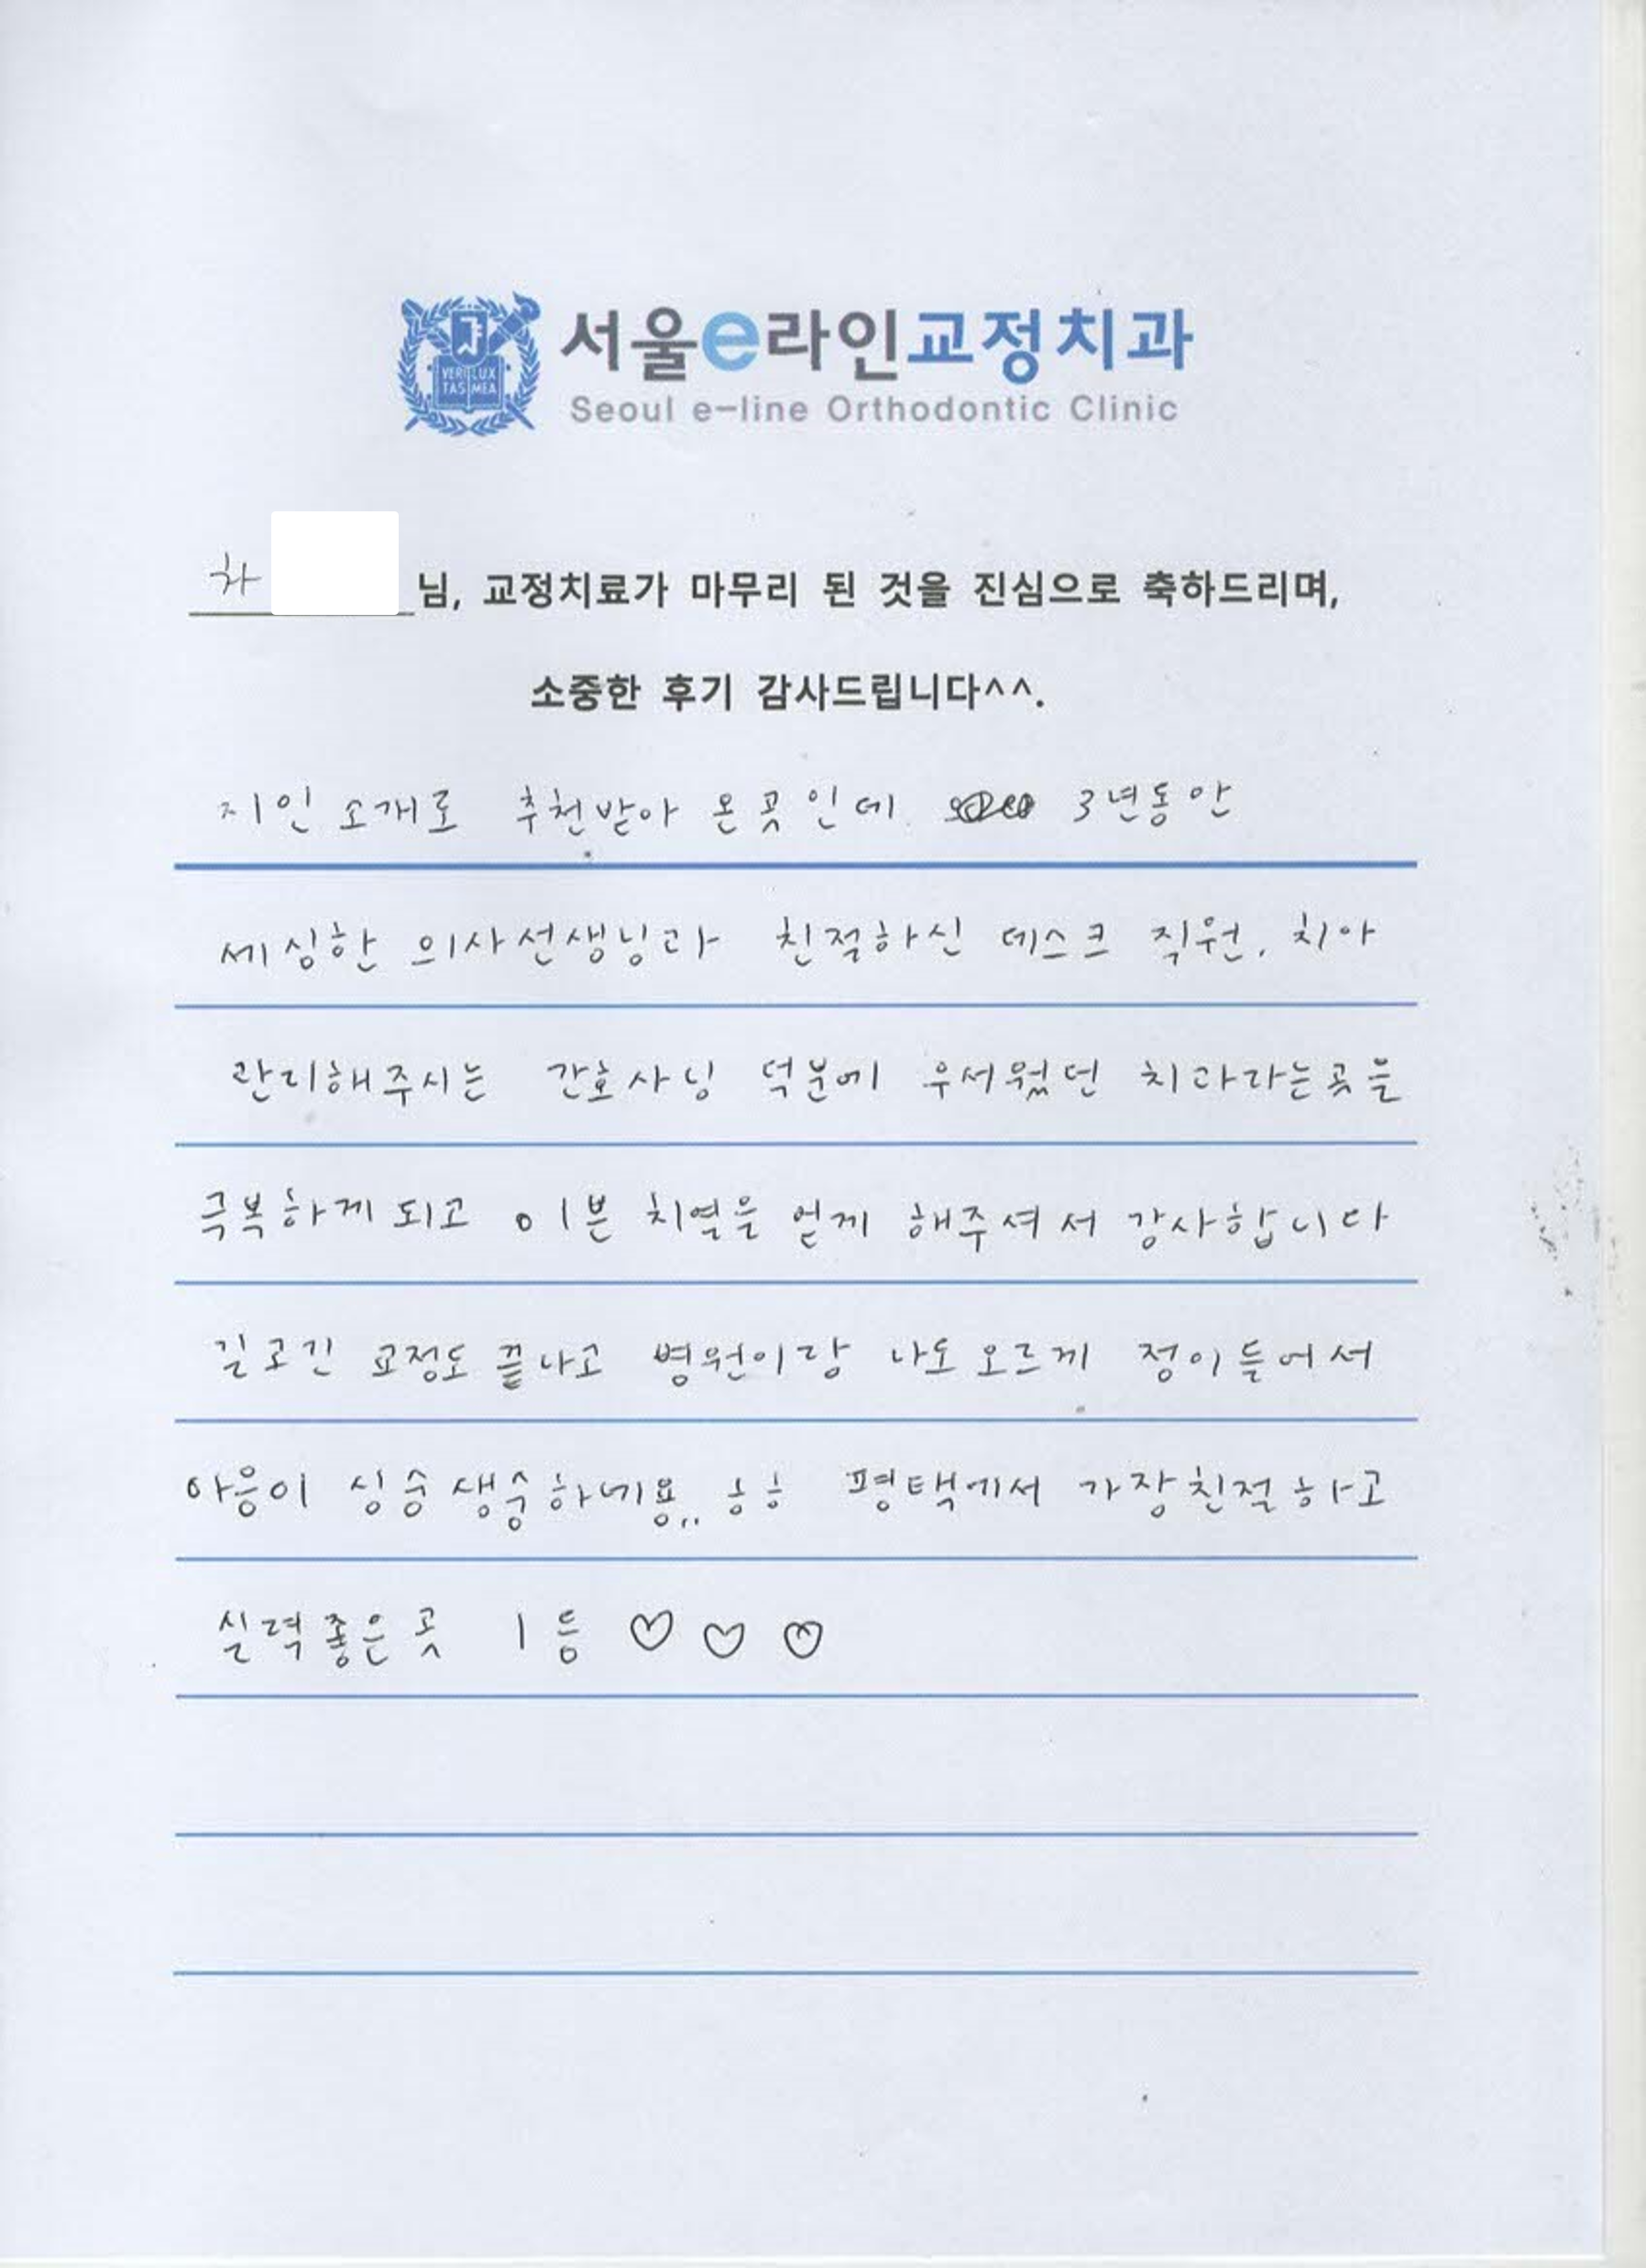 서울e라인교정치과
Seoul e-line Orthodontic Clinic
VERI LUX
TAS MEA
차
님, 교정치료가 마무리 된 것을 진심으로 축하드리며,
소중한 후기 감사드립니다^^.
지인 소개로 추천받아 온곳인데 3년동안
세심한 의사선생님과 친절하신 데스크 직원, 치아
관리해주시는 간호사님 덕분에 무서웠던 치과라는곳을
극복하게 되고 이쁜 치열을 얻게 해주셔서 감사합니다
길고긴 교정도 끝나고 병원이랑 나도모르게 정이들어서
마음이 싱숭생숭하네용.. ㅎㅎ 평택에서 가장친절하고
실력좋은곳 1등 ♡ ♡ ♡